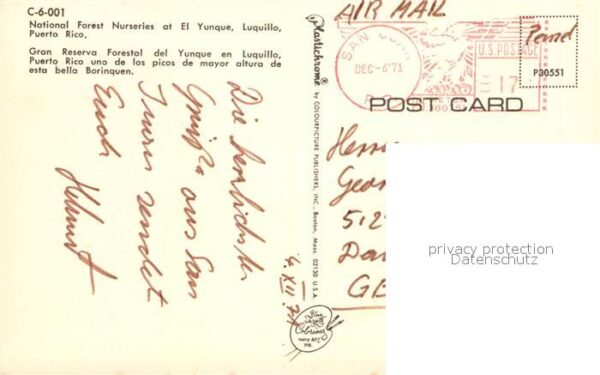 C-6-001
National Forest Nurseries at El Yunque, Luquillo,
Puerto Rico.
Gran Reserva Forestal del Yunque en Luquillo,
Puerto Rico uno de los picos de mayor altura de
esta bella Borinquen.
Die herzlichsten
Grüße aus San
Juan sendet
Euch Helmut
4. XII. 71
Plastichrome® by COLOURPICTURE PUBLISHERS, INC., Boston, Mass. 02130 U.S.A.
AIR MAIL
SAN JUAN
DEC-6'71
P.R.
U.S. POSTAGE
17
P30551
POST CARD
Herrn
Geor
5
Da
GE
privacy protection
Datenschutz